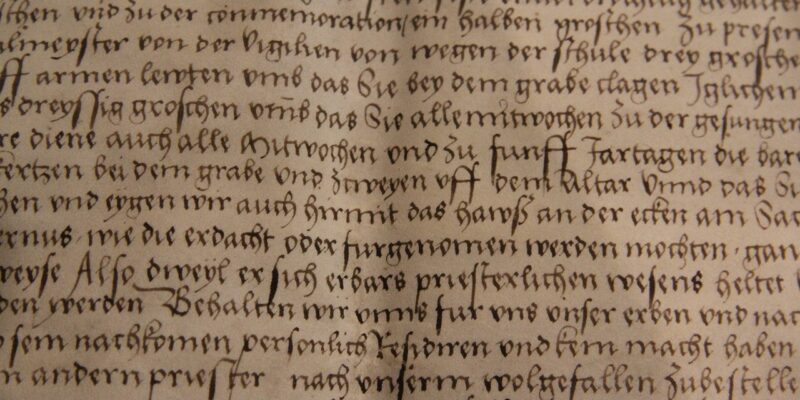 schen und zu der conmemoration, ein halben groschen zu presen
ulmeyster von der Vigilien von wegen der schule drey grosche
ff armen lewten vmb das Sie bey dem grabe clagen Iglichem
s dreyssig groschen vmb das Sie alle mitwochen zu der gesungen
re diene auch alle Mitwochen und zu funff Jartagen die bare
kertzen bei dem grabe und zcweyen vff dem Altar Vnnd das Si
zen vnd eygen wir auch hirmit das hawß an der ecken am Sac
ernus wie die erdacht oder furgenomen werden mochten gan
weyse Also dweyl er sich erbars priesterlichen wesens heltet
den werden Behalten wir vnns fur vns unser erben vnd nac
sein nachkomen personlich Residiren vnd kein macht haben
n andern priester nach vnserm wolgefallen zubestelle